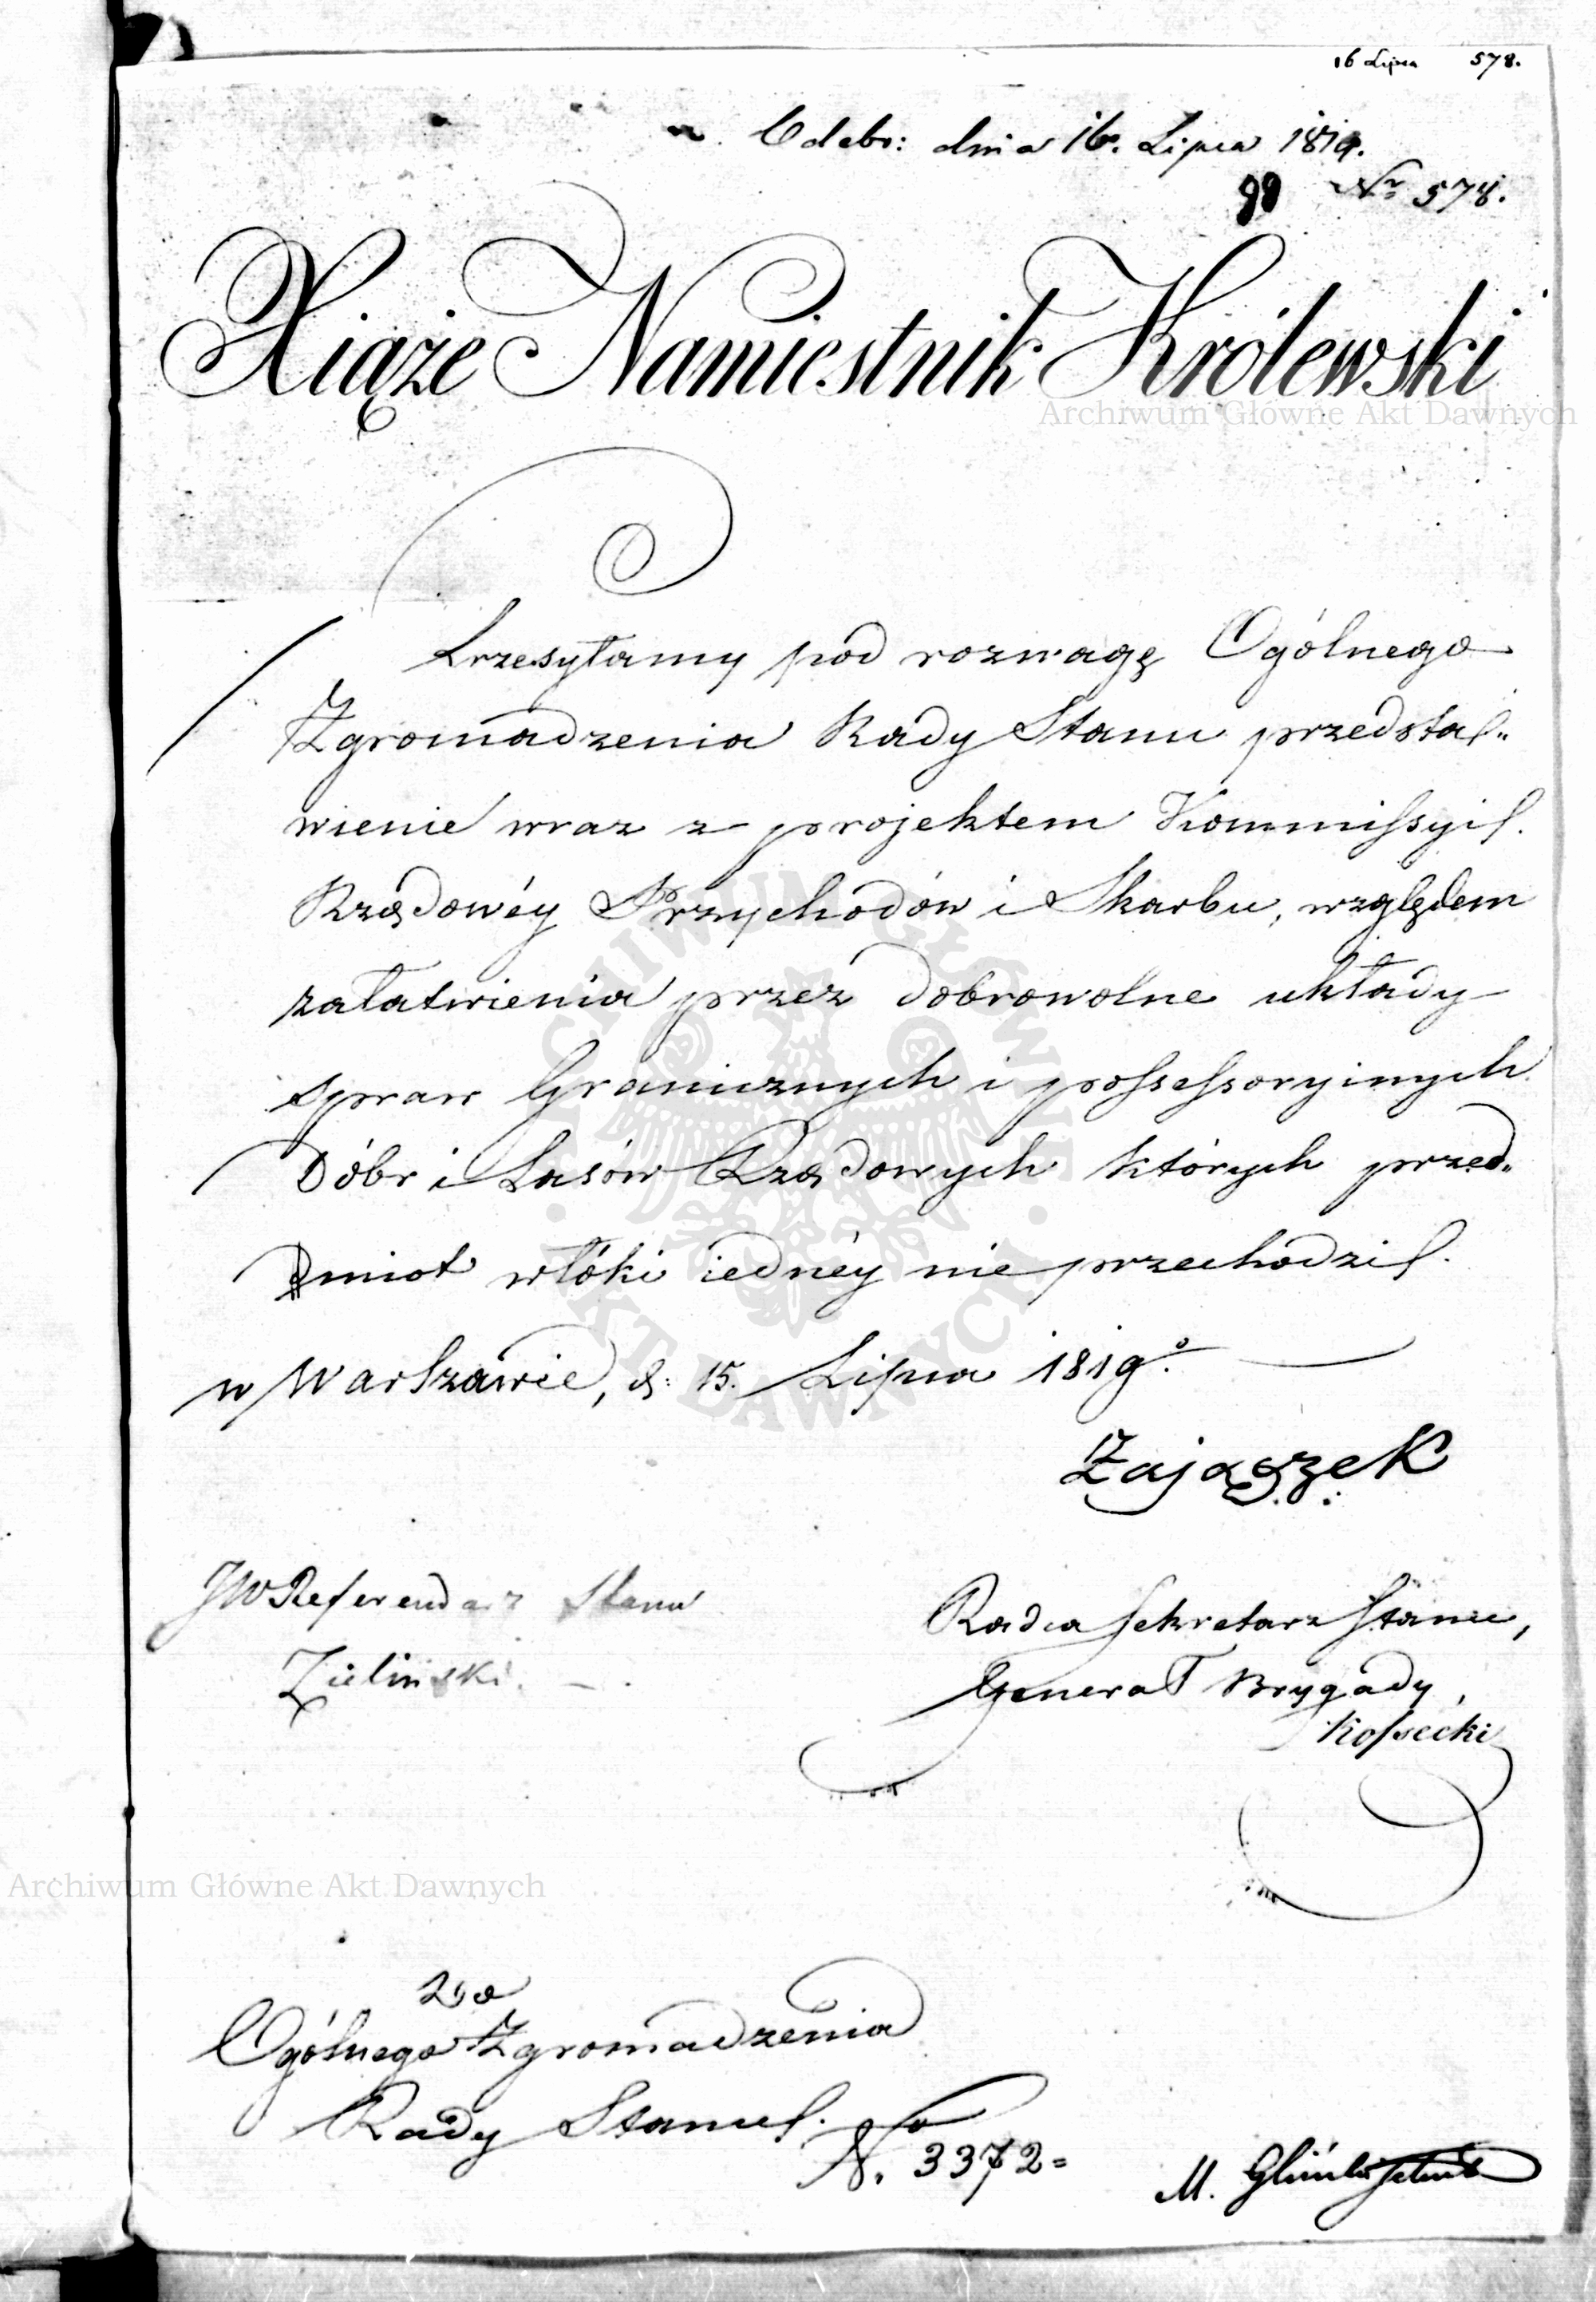 16 Lipca 578.
Odebr: dnia 16. Lipca 1819.
99 Nr 578.
Xiąże Namiestnik Królewski
Archiwum Główne Akt Dawnych
Przesyłamy pod rozwagę Ogólnego
Zgromadzenia Rady Stanu przedsta„
wienie wraz z projektem Kommissyi
Rządowéy Przychodów i Skarbu, względem
załatwienia przez dobrowolne układy
spraw Granicznych i possessoryinych
Dóbr i Lasów Rządowych których przed„
miot włóki iednéy nie przechodzi.
w Warszawie, d: 15. Lipca 1819.o
Zajączek
JW Referendarz Stanu
Zieliński.
Radca Sekretarz Stanu,
Generał Brygady,
Kossecki
Archiwum Główne Akt Dawnych
Do
Ogólnego Zgromadzenia
Rady Stanu.
No. 3372=
M.
ARCHIWUM GŁÓWNE • AKT DAWNYCH •